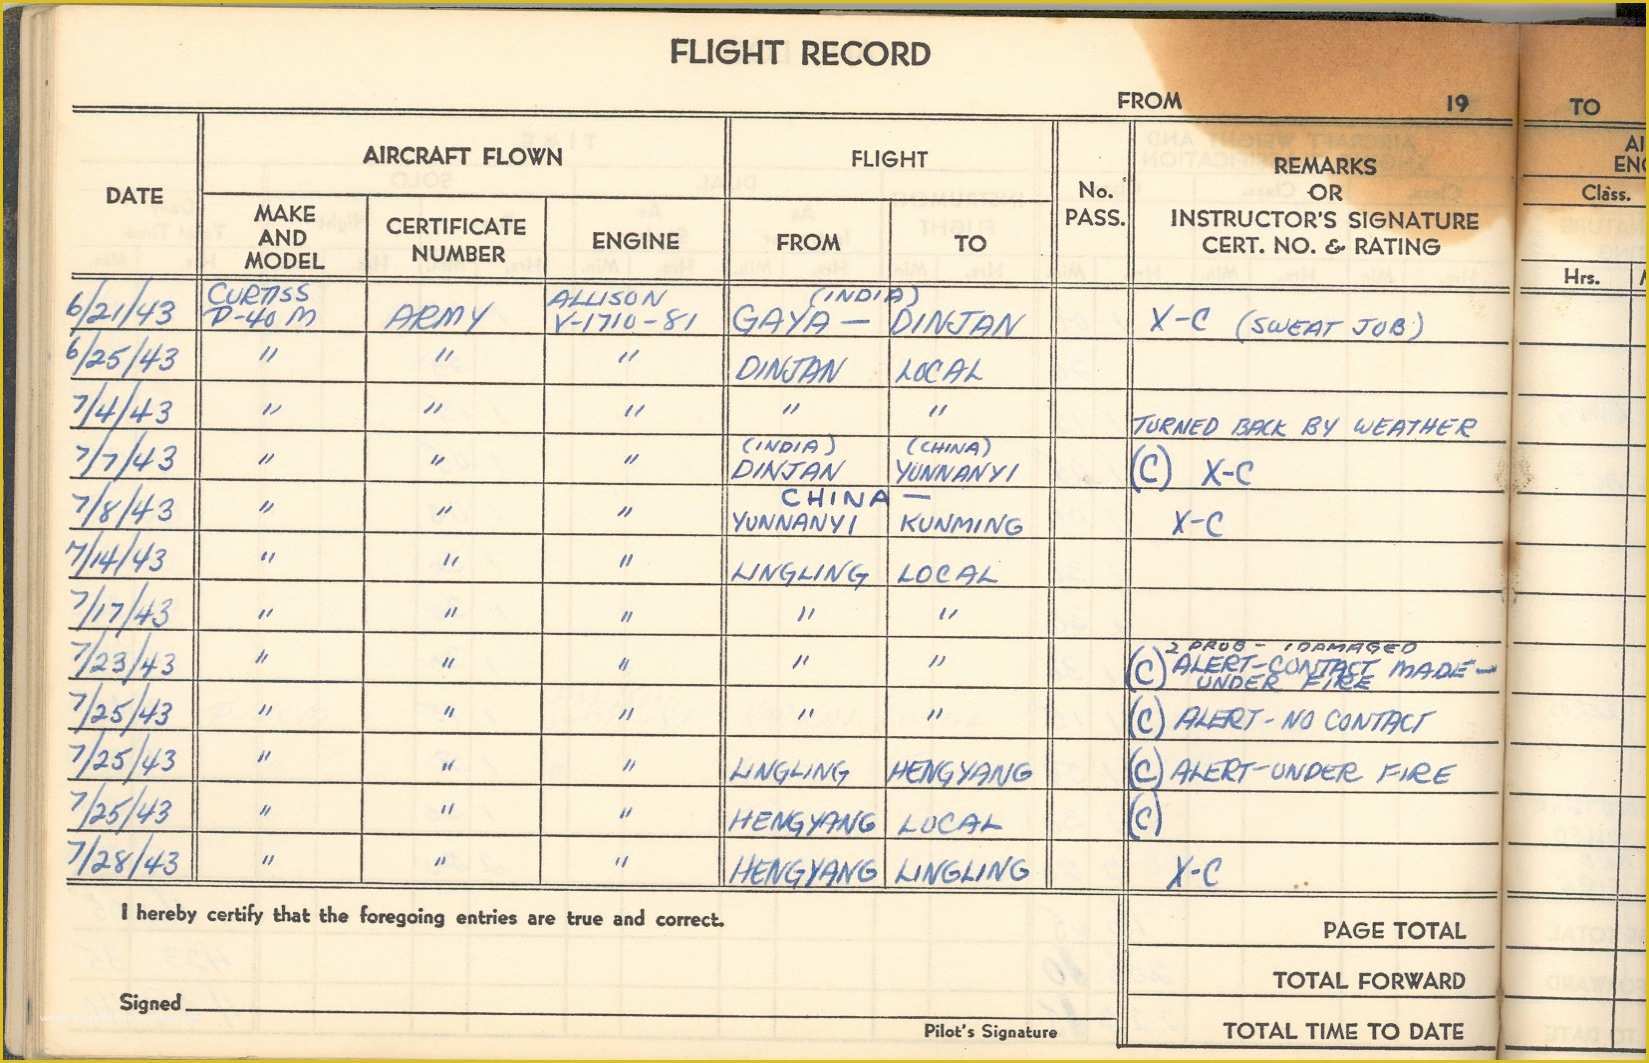 FLIGHT RECORD
FROM 19 TO
DATE
AIRCRAFT FLOWN
FLIGHT
No. PASS.
REMARKS OR INSTRUCTOR'S SIGNATURE CERT. NO. & RATING
MAKE AND MODEL
CERTIFICATE NUMBER
ENGINE
FROM
TO
Class.
Hrs.
6/21/43 CURTISS P-40 M ARMY ALLISON V-1710-81 (INDIA) GAYA — DINJAN X-C (SWEAT JOB)
6/25/43 " " " DINJAN LOCAL
7/4/43 " " " " " TURNED BACK BY WEATHER
7/7/43 " " " (INDIA) DINJAN (CHINA) YUNNANYI (C) X-C
7/8/43 " " " CHINA — YUNNANYI KUNMING X-C
7/14/43 " " " LINGLING LOCAL
7/17/43 " " " " "
7/23/43 " " " " " 2 PROB - 1 DAMAGED (C) ALERT-CONTACT MADE- UNDER FIRE
7/25/43 " " " " " (C) ALERT-NO CONTACT
7/25/43 " " " LINGLING HENGYANG (C) ALERT-UNDER FIRE
7/25/43 " " " HENGYANG LOCAL (C)
7/28/43 " " " HENGYANG LINGLING X-C
I hereby certify that the foregoing entries are true and correct.
PAGE TOTAL
TOTAL FORWARD
Signed
Pilot's Signature
TOTAL TIME TO DATE